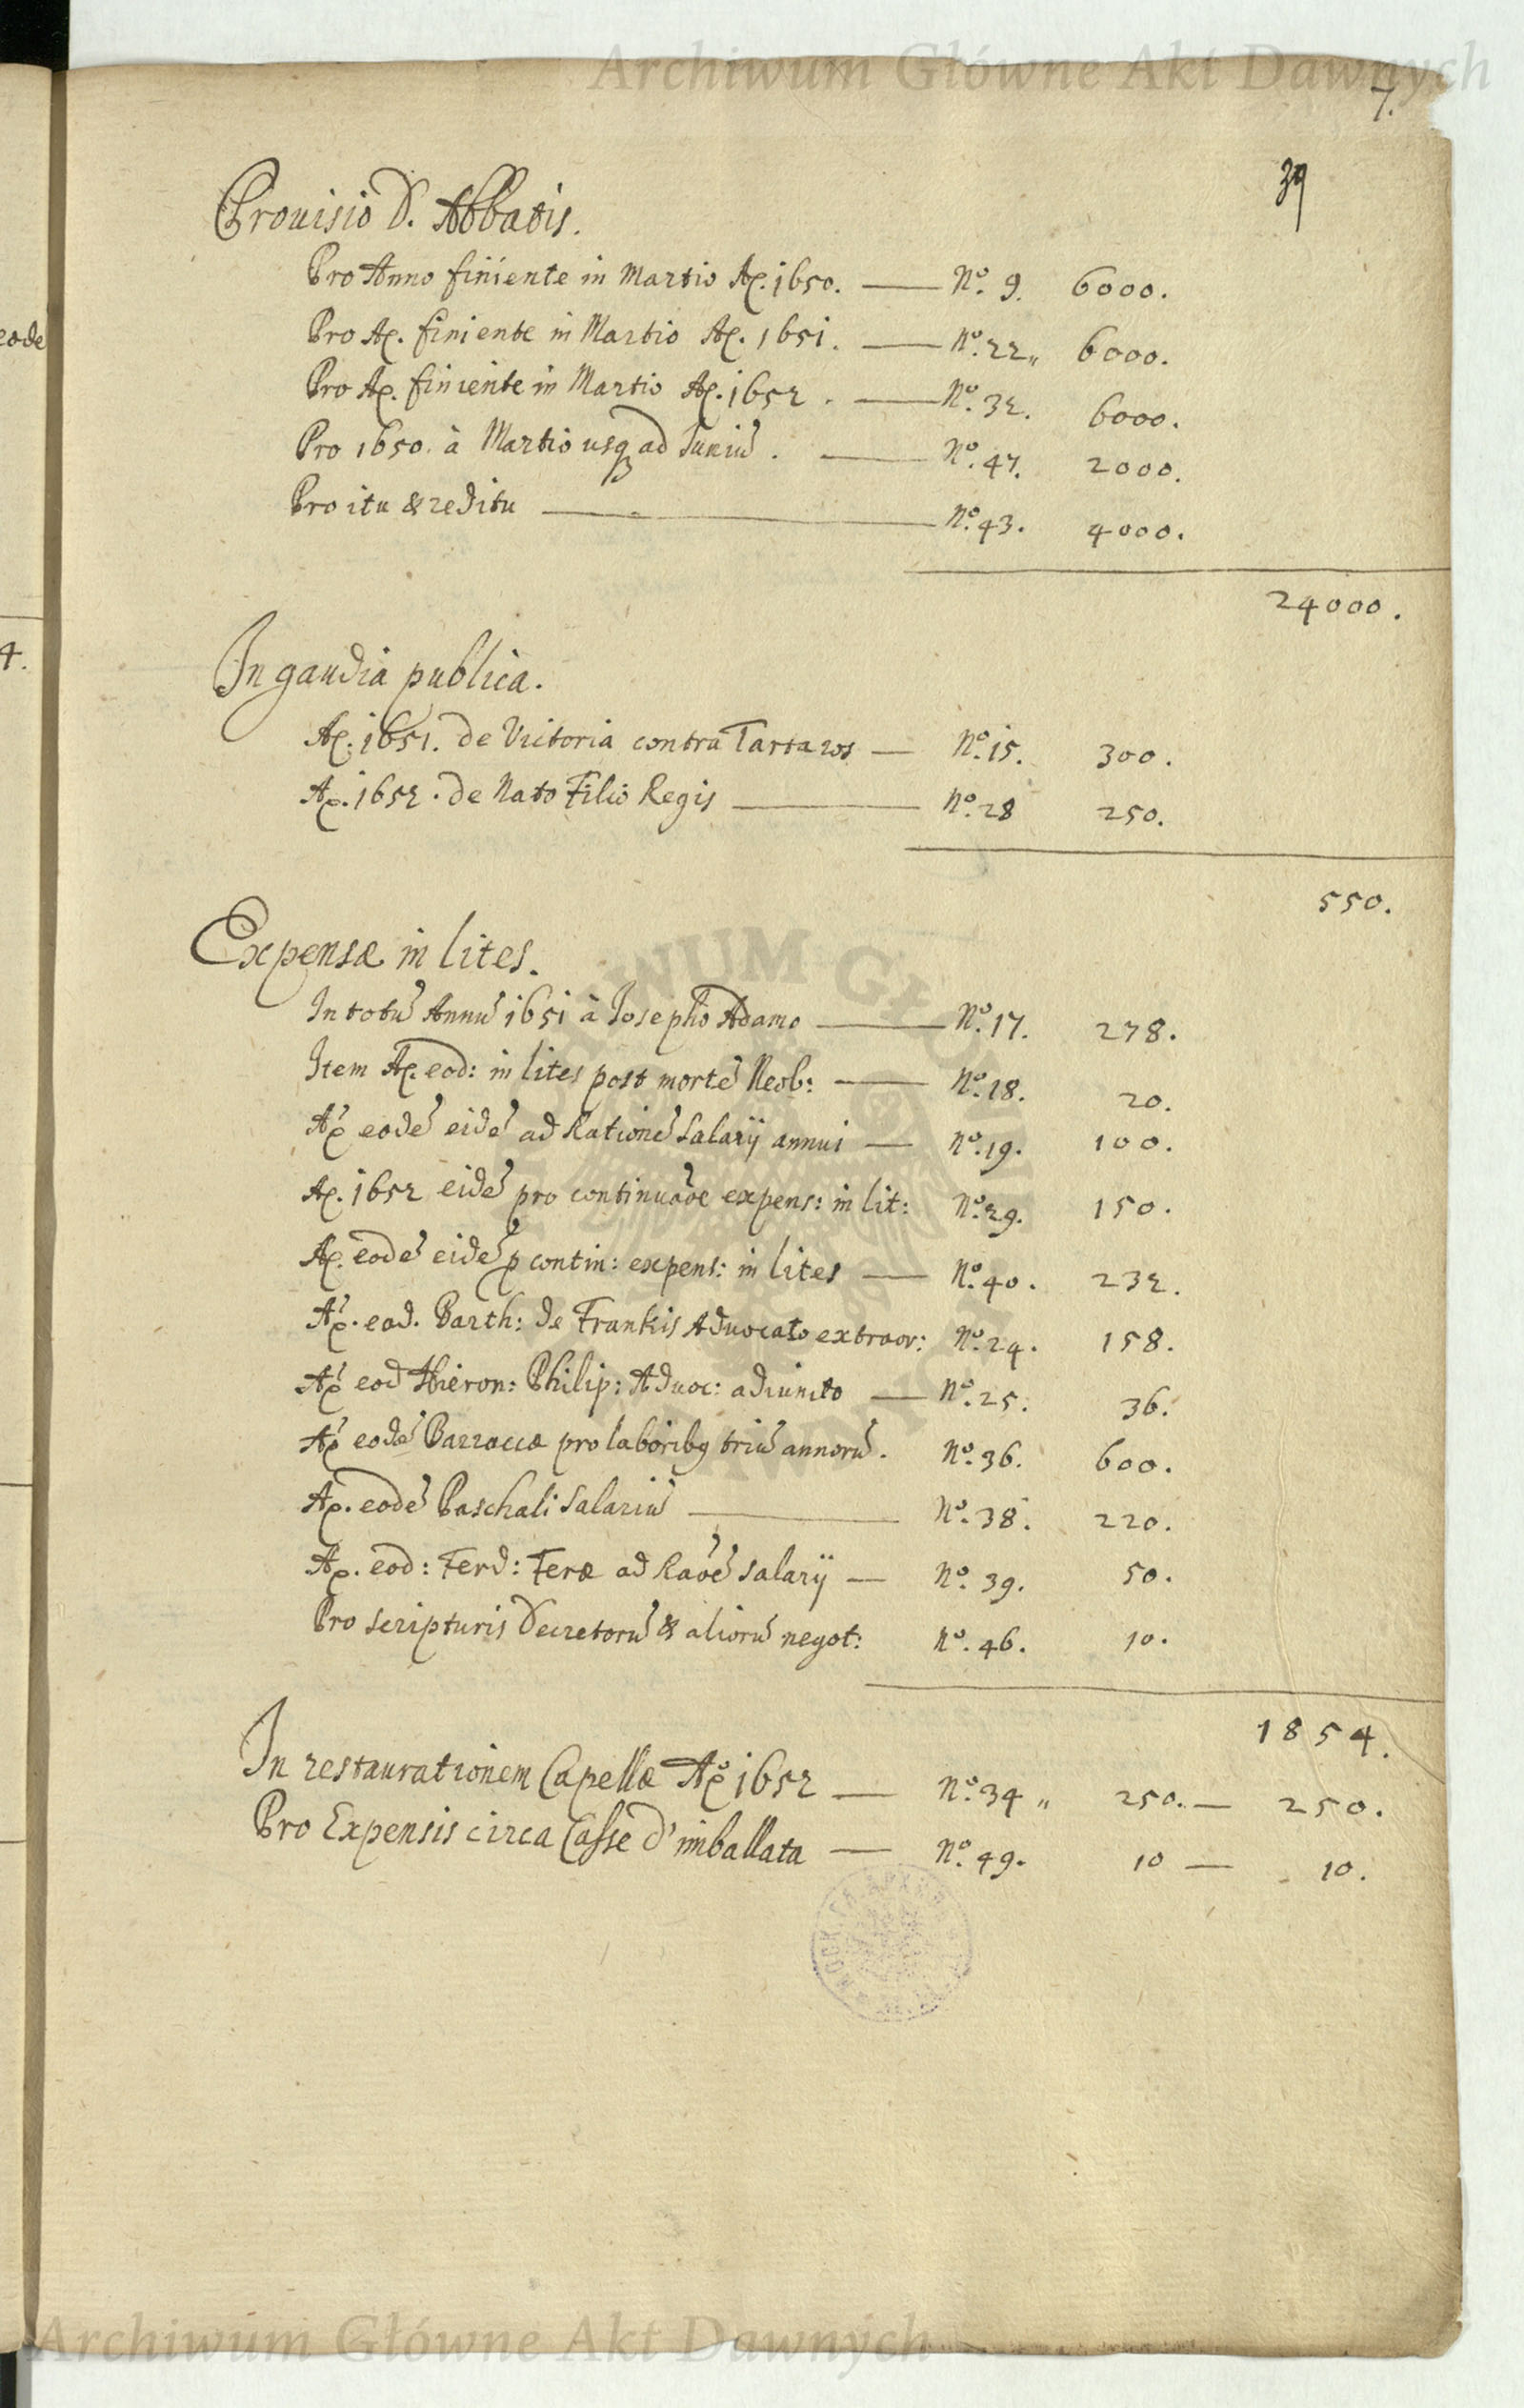 Archiwum Główne Akt Dawnych
7.
39
eode
4.
Prouisio D. Abbatis.
Pro Anno finiente in Martio Aº. 1650. — Nº. 9. 6000.
Pro Aº. finiente in Martio Aº. 1651. — Nº. 22„ 6000.
Pro Aº. finiente in Martio Aº. 1652. — Nº. 32. 6000.
Pro 1650. à Martio usq ad Juniũ. — Nº. 47. 2000.
Pro itu & reditu — Nº. 43. 4000.
24000.
In gaudia publica.
Aº. 1651. de Victoria contra Tartaros — Nº. 15. 300.
Aº. 1652. de Nato Filio Regis — Nº. 28 250.
550.
Expensæ in lites.
In totũ Annũ 1651 à Josepho Adamo — Nº. 17. 278.
Item Aº. eod: in lites post mortẽ Neob: — Nº. 18. 20.
Aº eodẽ eidẽ ad Rationẽ Salarij annui — Nº. 19. 100.
Aº. 1652 eidẽ pro continuaõe expens: in lit: Nº. 29. 150.
Aº. eodẽ eidẽ p contin: expens: in lites — Nº. 40. 232.
Aº. eod. Barth: de Frankis Aduocato extraor: Nº. 24. 158.
Aº eod Hieron: Philip: Aduoc: adiuncto — Nº. 25. 36.
Aº eodẽ Barraccæ pro laboribq triũ annorũ. Nº. 36. 600.
Aº. eodẽ Paschali Salariũ — Nº. 38. 220.
Aº. eod: Ferd: Feræ ad Raõẽ Salarij — Nº. 39. 50.
Pro scripturis Decretorũ & aliorũ negot: Nº. 46. 10.
1854.
In restaurationem Capellæ Aº 1652 — Nº. 34„ 250. — 250.
Pro Expensis circa Casse d'imballata — Nº. 49. 10 — 10.
Archiwum Główne Akt Dawnych